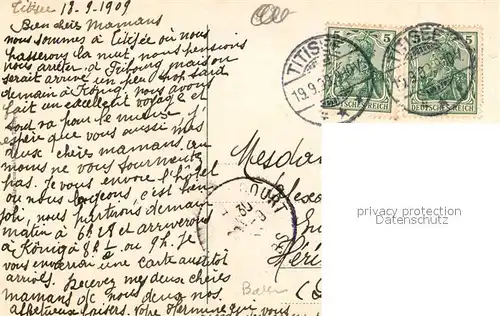 Titisee 19-9-1909
Bien chères Mamans
nous sommes à Titisée où nous
passerons la nuit, nous pensions
nous arrêter à Fribourg mais on
serait arrivé un peu trop tard
demain à König, nous avons
fait un excellent voyage et
tout va pour le mieux. J'
espère que vous aussi mes
deux chères mamans, au
moins ne vous tourmentez
pas. Je vous envoie l'hôtel
où nous logeons, c'est bien
joli, nous partirons demain
matin à 6h 29 et arriverons
à König à 8h ½ ou 9h. Je
vous enverrai une carte aussitôt
arrivés. Recevez mes deux chères
mamans de nous deux nos
affectueux baisers. Votre Hermine qui vous
TITISEE
19.9.
5
DEUTSCHES REICH
TITISEE
5
DEUTSCHES REICH
Mesda
COURT
30
Héri
Baden
privacy protection